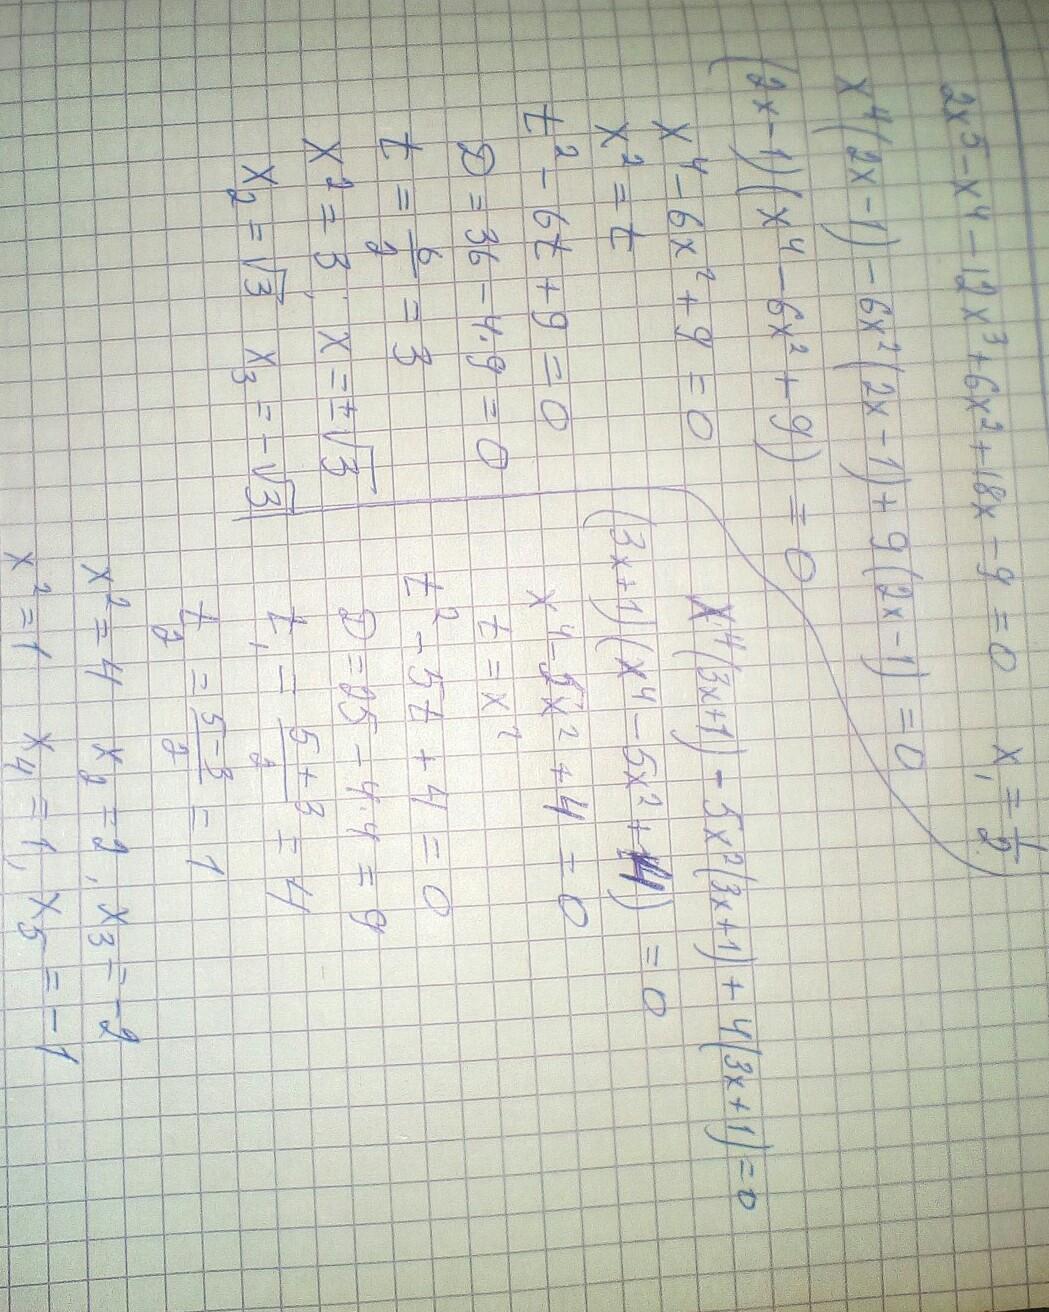 2x⁵ - x⁴ - 12x³ + 6x² + 18x - 9 = 0   x₁ = 1/2
x⁴(2x - 1) - 6x²(2x - 1) + 9(2x - 1) = 0
(2x - 1)(x⁴ - 6x² + 9) = 0
x⁴ - 6x² + 9 = 0
x² = t
t² - 6t + 9 = 0
D = 36 - 4·9 = 0
t = 6/2 = 3
x² = 3; x = ±√3
x₂ = √3   x₃ = -√3
x⁴(3x+1) - 5x²(3x+1) + 4(3x+1) = 0
(3x+1)(x⁴ - 5x² + 4) = 0
x⁴ - 5x² + 4 = 0
t = x²
t² - 5t + 4 = 0
D = 25 - 4·4 = 9
t₁ = (5+3)/2 = 4
t₂ = (5-3)/2 = 1
x² = 4   x₂ = 2, x₃ = -2
x² = 1   x₄ = 1, x₅ = -1